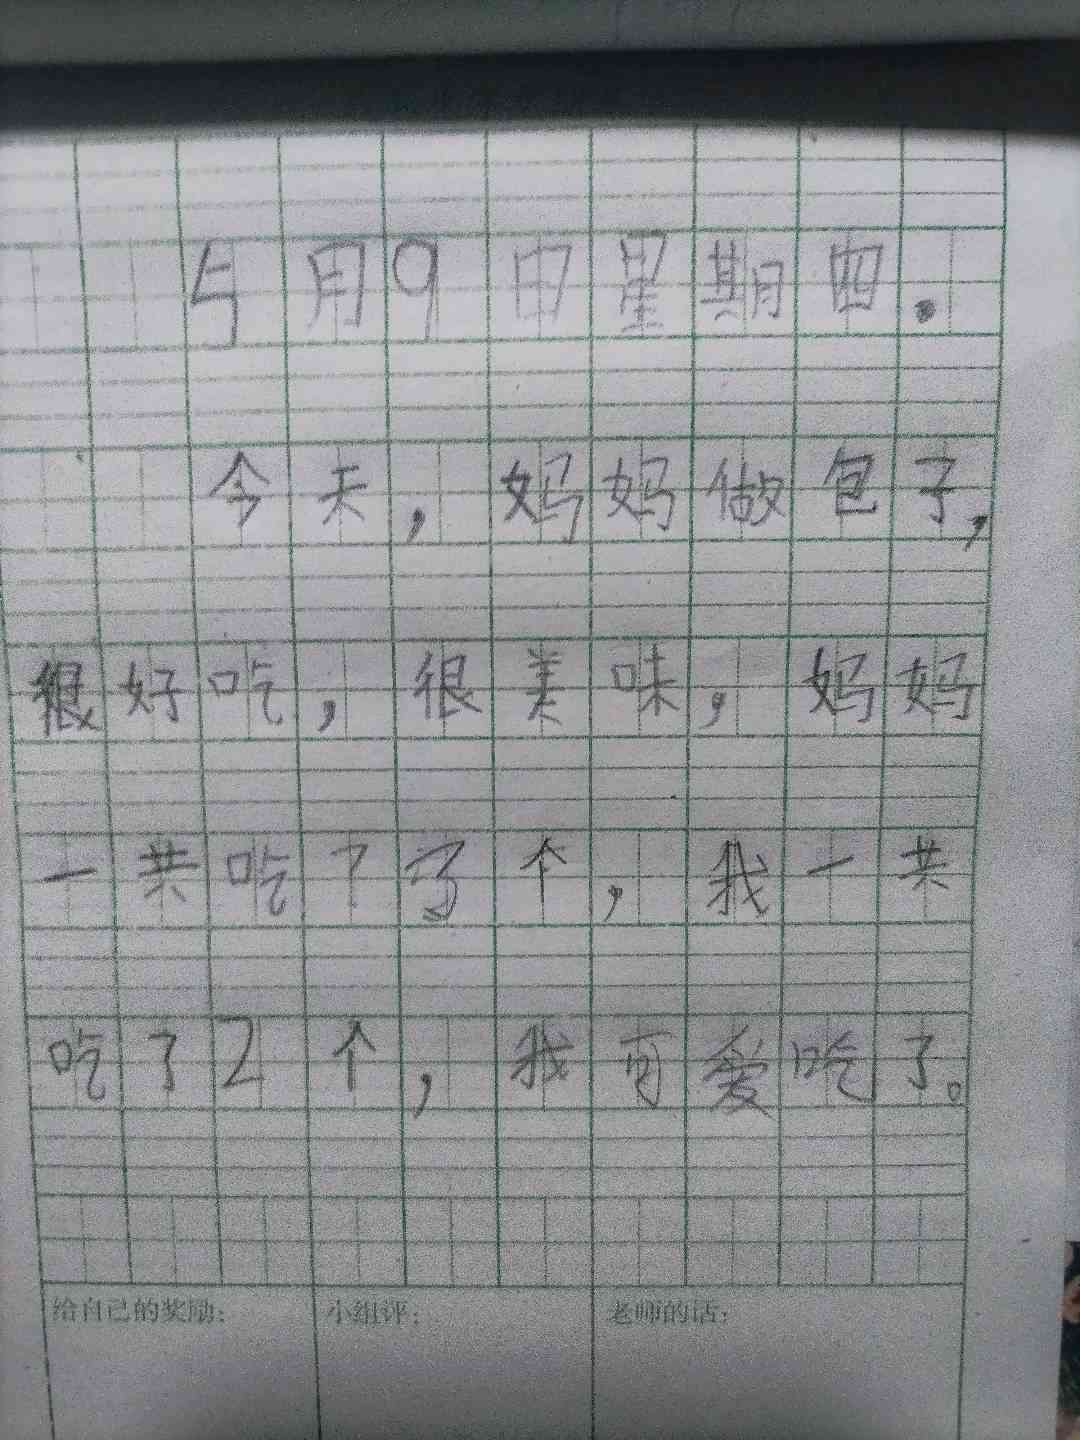 5月9日星期四.
今天,妈妈做包子,
很好吃,很美味,妈妈
一共吃了个,我一共
吃了2个,我可爱吃了。
给自己的奖励: 小组评: 老师的话: